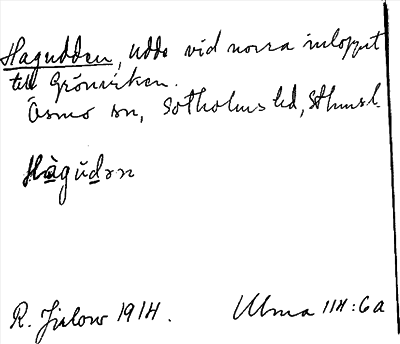 Hagudden, udde vid norra inloppet
till Grönviken.
Ösmo sn, Sotholms hd, Sthms l.
Hàgŭdən
R. Jirlow 1914.
Ulma 114:6a